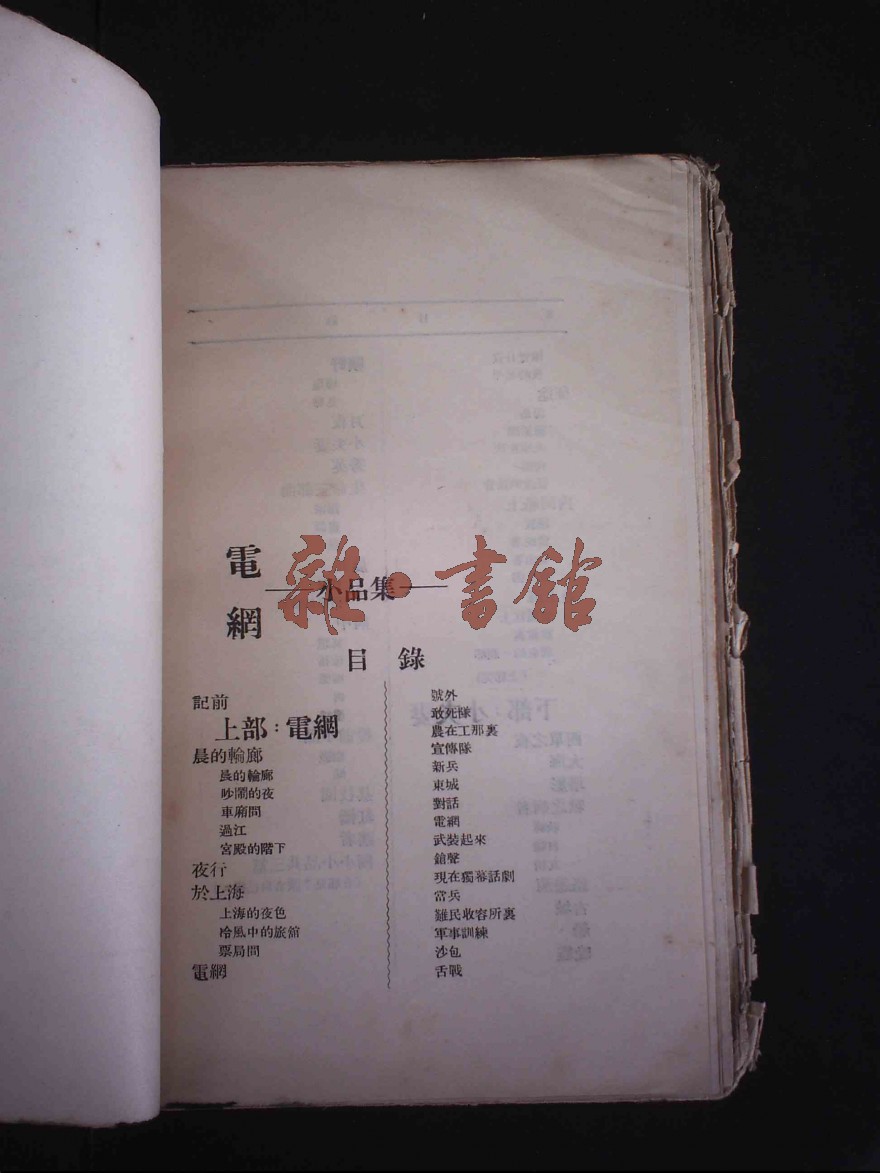 電網
小品集
雜·書館
目錄
記前
上部：電網
晨的輪廊
晨的輪廊
吵鬧的夜
車廂間
過江
宮殿的階下
夜行
於上海
上海的夜色
冷風中的旅舘
票局間
電網
號外
敢死隊
農在工那裏
宣傳隊
新兵
東城
對話
電網
武裝起來
鎗聲
現在獨幕話劇
當兵
難民收容所裏
軍事訓練
沙包
舌戰